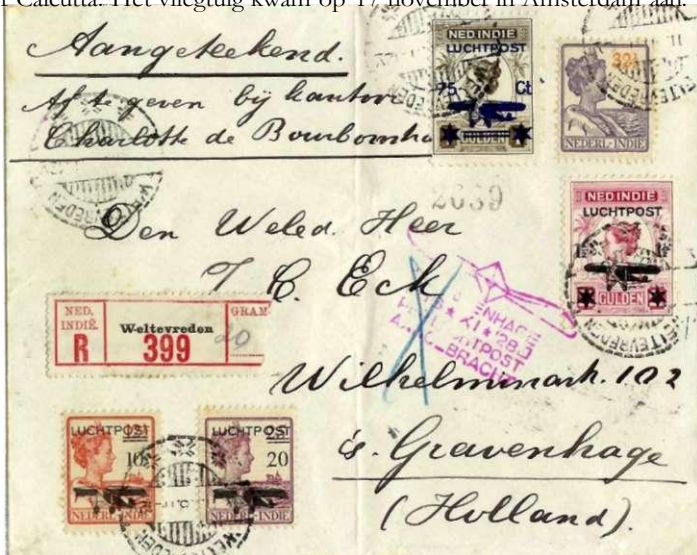 Calcutta. Het vliegtuig kwam op 17 november in Amsterdam aan.
Aangeteekend.
Af te geven bij kantoor
Charlotte de Bourbon
NED INDIE
LUCHTPOST
75 Ct
GULDEN
32½
NEDERL-INDIE
2639
NED INDIE
LUCHTPOST
GULDEN
WELTEVREDEN
Den Weled. Heer
T C. Eck
NED.
INDIË.
R
Weltevreden
399
20
XI 28
POST
Wilhelminark. 102
's Gravenhage
(Holland).
LUCHTPOST
10
NEDERL-INDIE
LUCHTPOST
20
NEDERL-INDIE
WELTEVREDEN